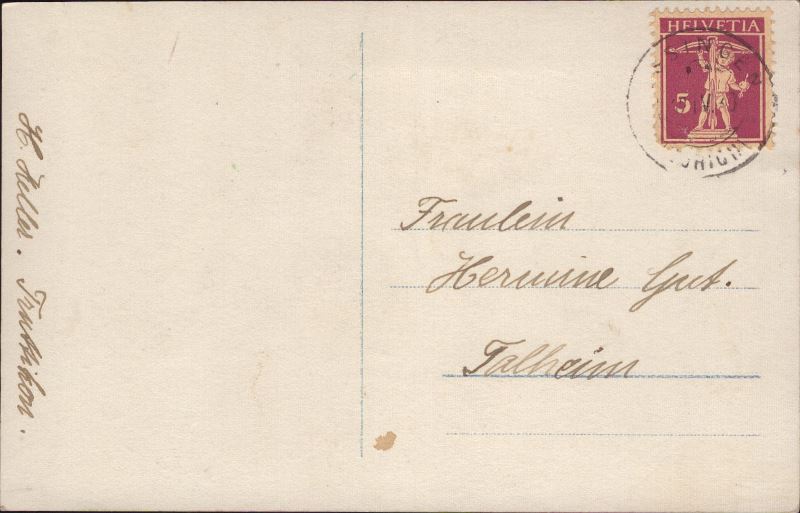 HELVETIA
5
Fräulein
Hermine Gut.
Talheim
H. Keller. Truttikon.